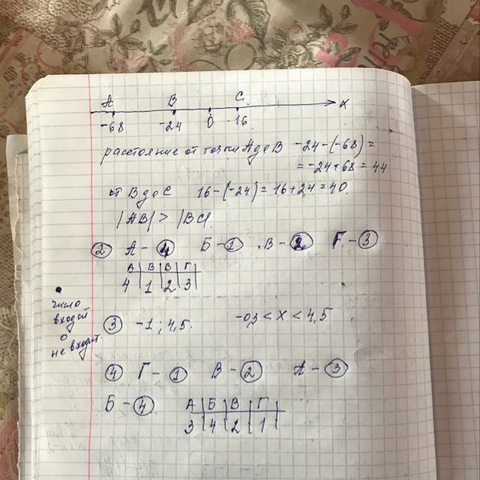 A B C
-68 -24 0 -16 x
расстояние от точки A до B -24-(-68)=
= -24+68 = 44
от B до C 16-(-24) = 16+24 = 40.
|AB| > |BC|.
② А - ④ Б - ① В - ② Г - ③
А В В Г
4 1 2 3
число
входит
о
не входит
③ -1; 4,5. -0,3 < x < 4,5
④ Г - ① В - ② А - ③
Б - ④ А Б В Г
3 4 2 1